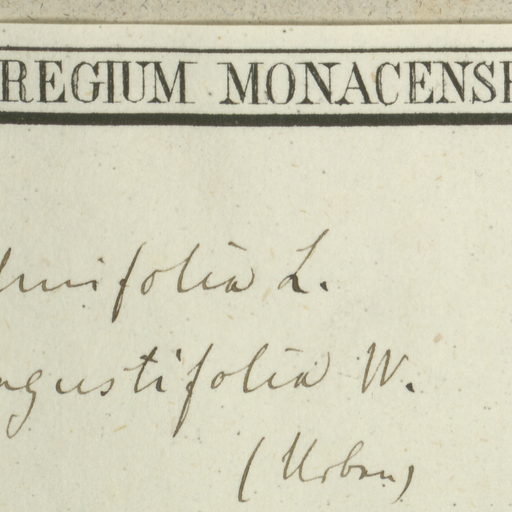 REGIUM MONACENSE
lmifolia L.
ngustifolia W.
(Urban)